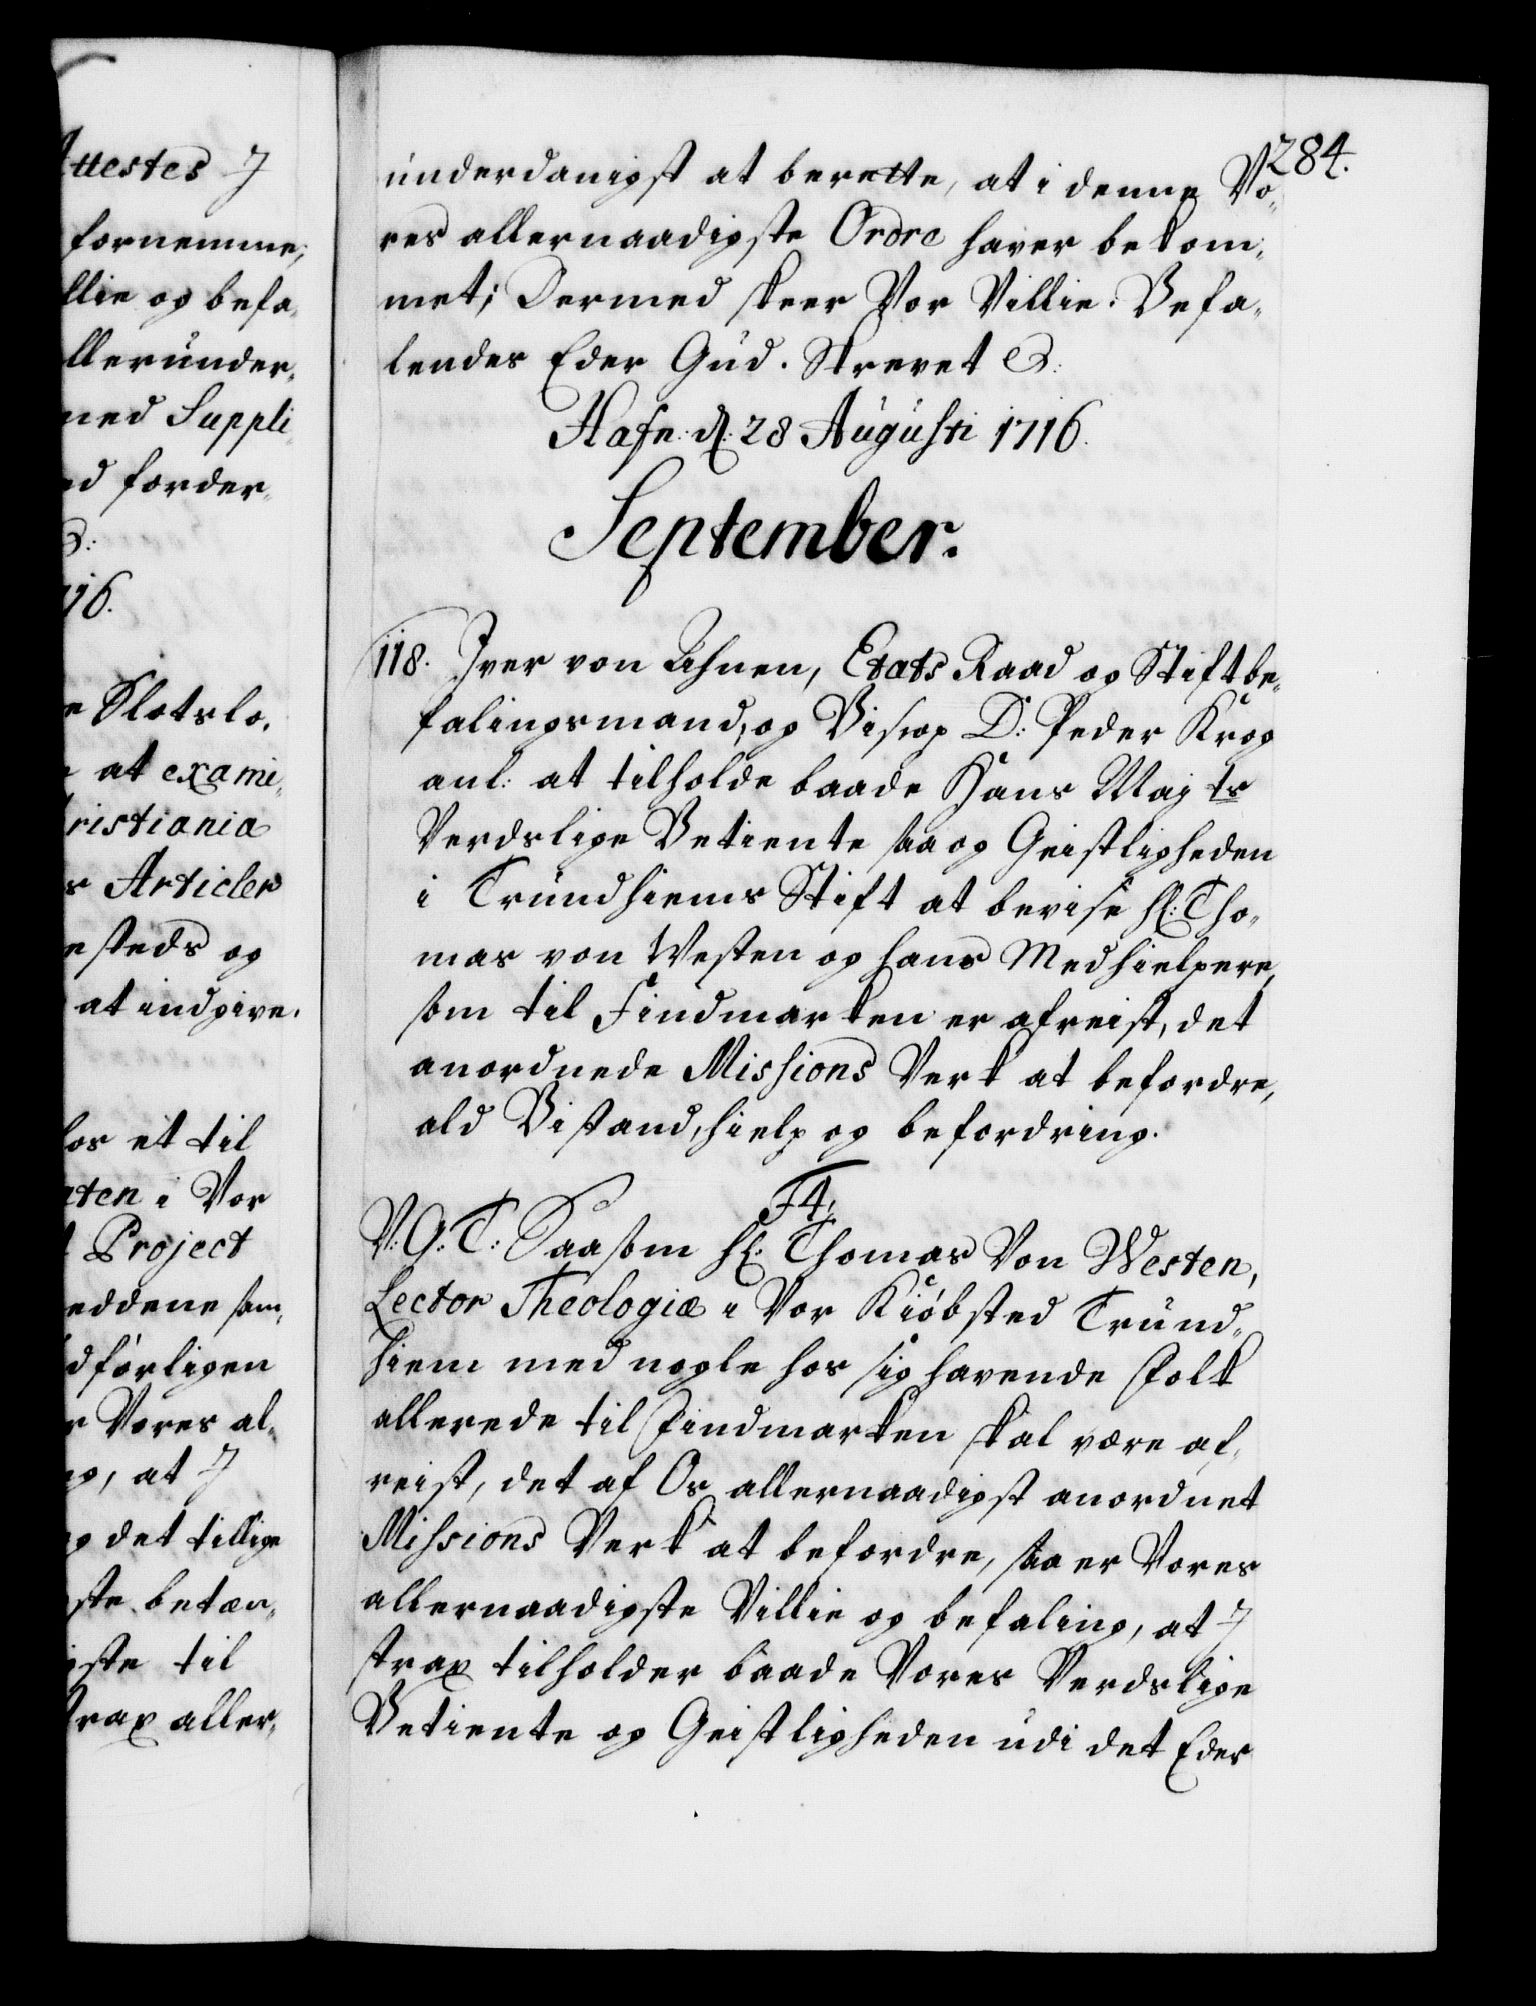 284.
underdanigst at berette, at i denne Vo-
res allernaadigste Ordre haver bekom-
met; Dermed skeer Vor Villie. Befa-
lendes Eder Gud. Skrevet &:
Hafn: d: 28 Augusti 1716.
September.
118. Iver von Ahnen, Etats Raad og Stiftbe-
falingsmand, og Bisrop D: Peder Krog
anl: at tilholde baade Hans Maj ts
Verdslige Betiente saa og Geistligheden
i Trundhiems Stift at bevise Hr: Tho-
mas von Westen og hans Medhielpere,
som til Findmarken er afreist, det
anordnede Missions Verk at befordre,
ald Bistand, hielp og befordring.
F4.
V: G: T: Saasom Hr: Thomas Von Westen,
Lector Theologiæ i Vor Kiöbsted Trund-
hiem med nogle hos sig havende Folk
allerede til Findmarken skal være af-
reist, det af Os allernaadigst anordnet
Missions Verk at befordre, saa er Vores
allernaadigste Villie og befaling, at I
strax tilholder baade Vores Verdslige
Betiente og Geistligheden udi det Eder
Attestes I
fornemme,
llie og befa-
llerunder-
med Suppli-
ed forder-
&:
716.
e Slotslo.
at exami-
ristiania
s Articler
e steds og
at indgive.
hos et til
aten i Vor
Project
eddene sam-
dförligen
r Vores al-
ng, at I
og det tillige
ste betæn-
igste til
strax aller-